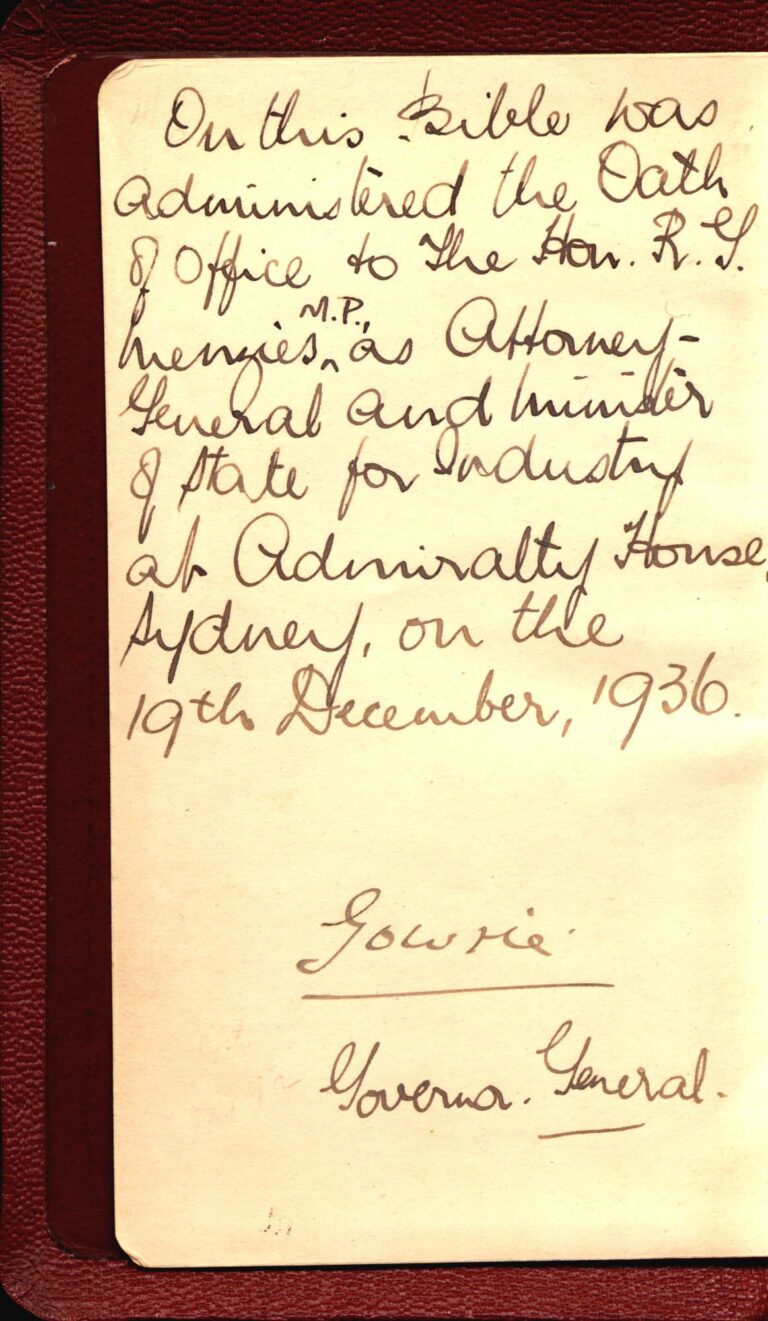 On this Bible was
administered the Oath
of Office to The Hon. R. G.
M.P.,
Menzies, ‸ as Attorney-
General and Minister
of State for Industry
at Admiralty House,
Sydney, on the
19th December, 1936.
Gowrie
Governor. General.